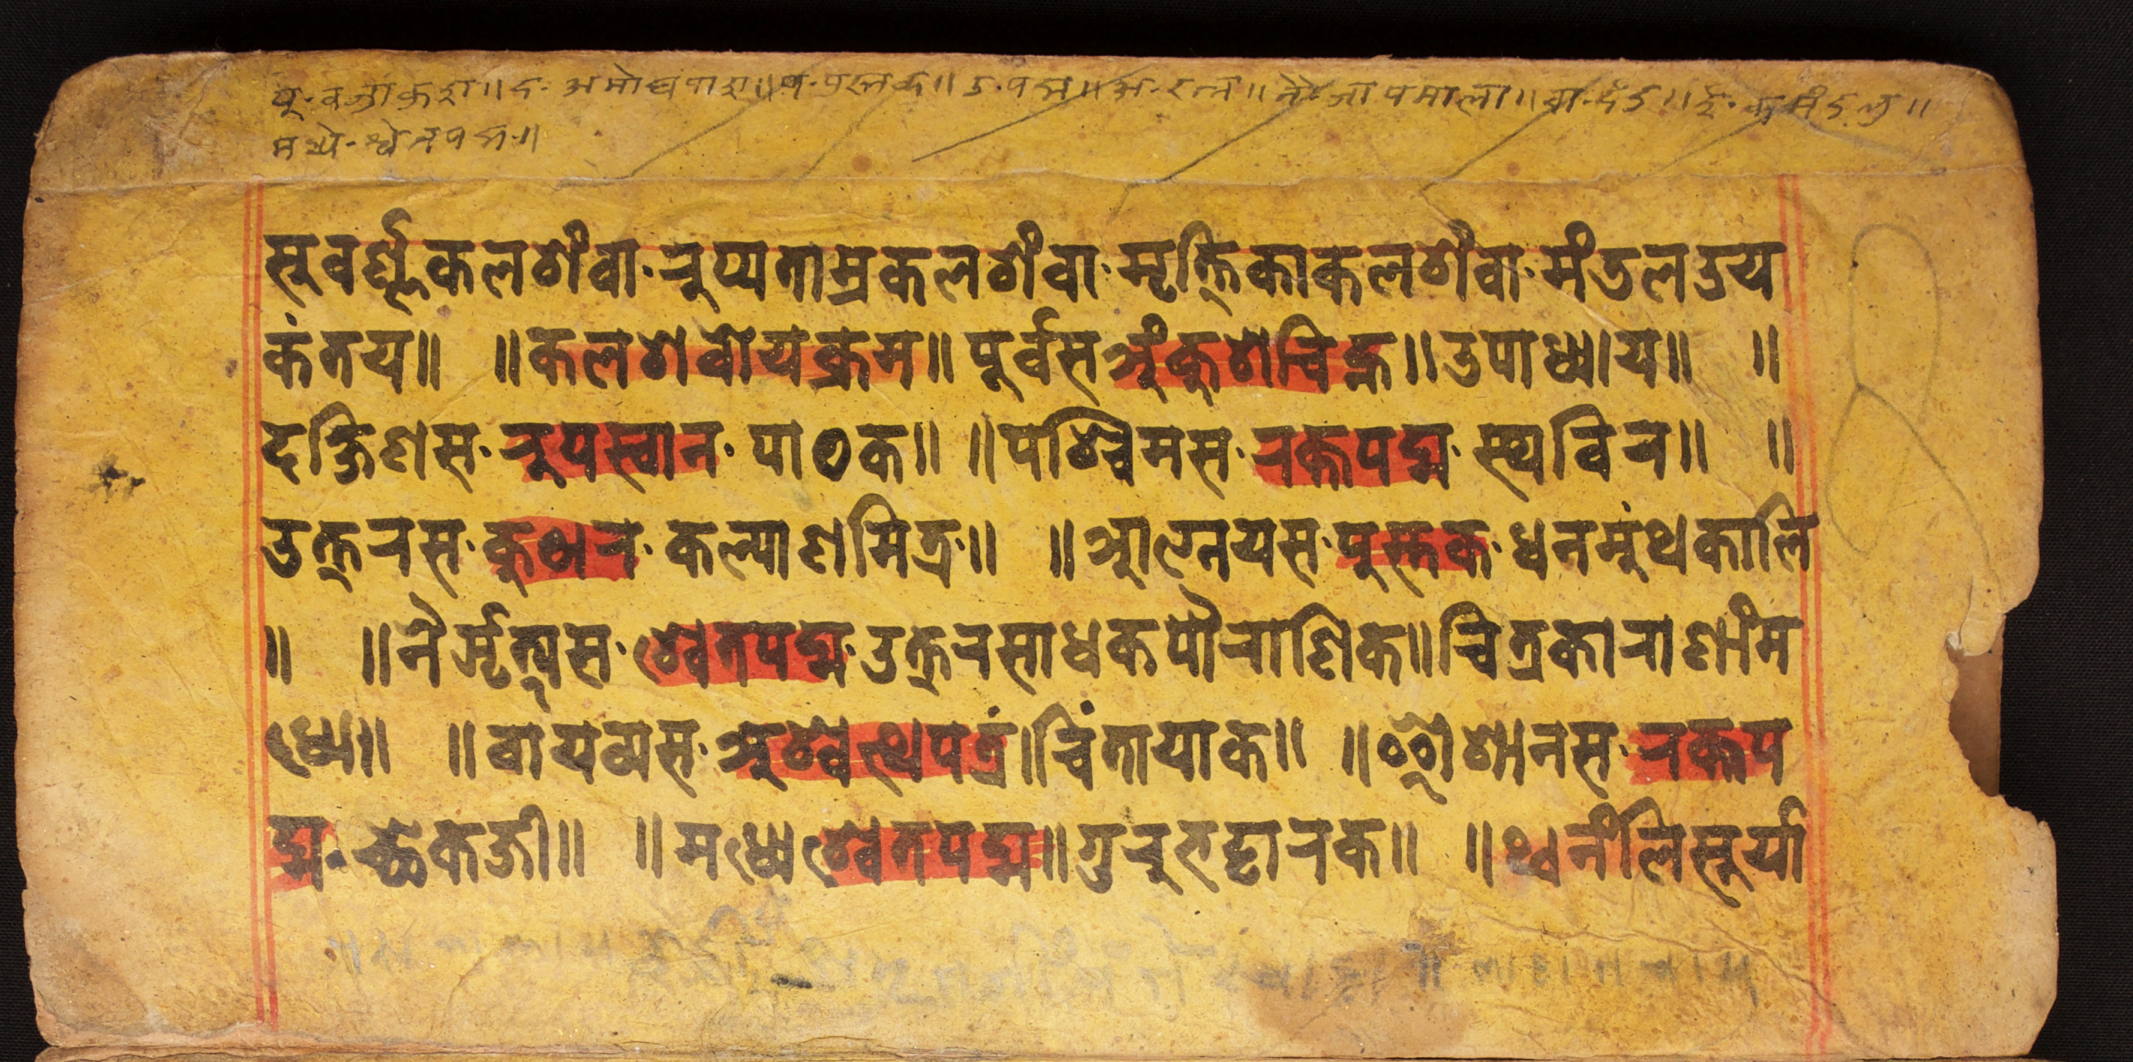 पू. वज्रांकुश॥ द. अमोघपाश॥ प. ॥ उ. पद्म॥ अ. रत्न॥ नै. जापमाला॥ वा. दंड॥ ई. कमंडलु॥
मध्ये. श्वेतपद्म॥
सुवर्ण्णकलशंवा. रुप्यताम्रकलशंवा. मृत्तिकाकलशंवा. मंडलडय
कंतय॥ ॥कलशबोयक्रम॥ पूर्वसअंकुशचिह्न॥उपाध्याय॥ ॥
दक्षिणस. रूपस्वान. पाठक॥ ॥पश्चिमस. रक्तपद्म स्थविर॥ ॥
उत्तरस. कुठार. कल्याणमित्र.॥ ॥आग्नेयस. पुस्तक. धनमूंथकालि
॥ ॥नैर्ऋत्यस. श्वेतपद्म. उत्तरसाधकपौराणिक॥चित्रकाराणीम
ध्ये॥ ॥वायव्यस. अश्वत्थपत्रं॥चिंतायाक॥ ॥ऐशानस. रक्तप
द्म. च्छेकजी॥ ॥मध्येश्वेतपद्म॥गुरुभट्टारक॥ ॥थ्वनंलिसूर्या